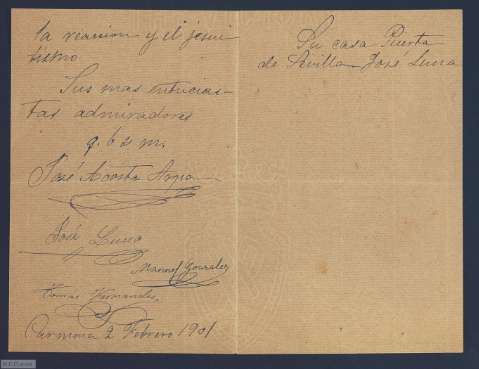 la reaccion y el jesui
tismo
Sus mas entucias-
tas admiradores
q. b s m.
José Acosta
José Luna
Manuel Gonzalez
Tomas Hernandez
Carmona 2 Febrero 1901
Su casa Puerta
de Sevilla José Luna